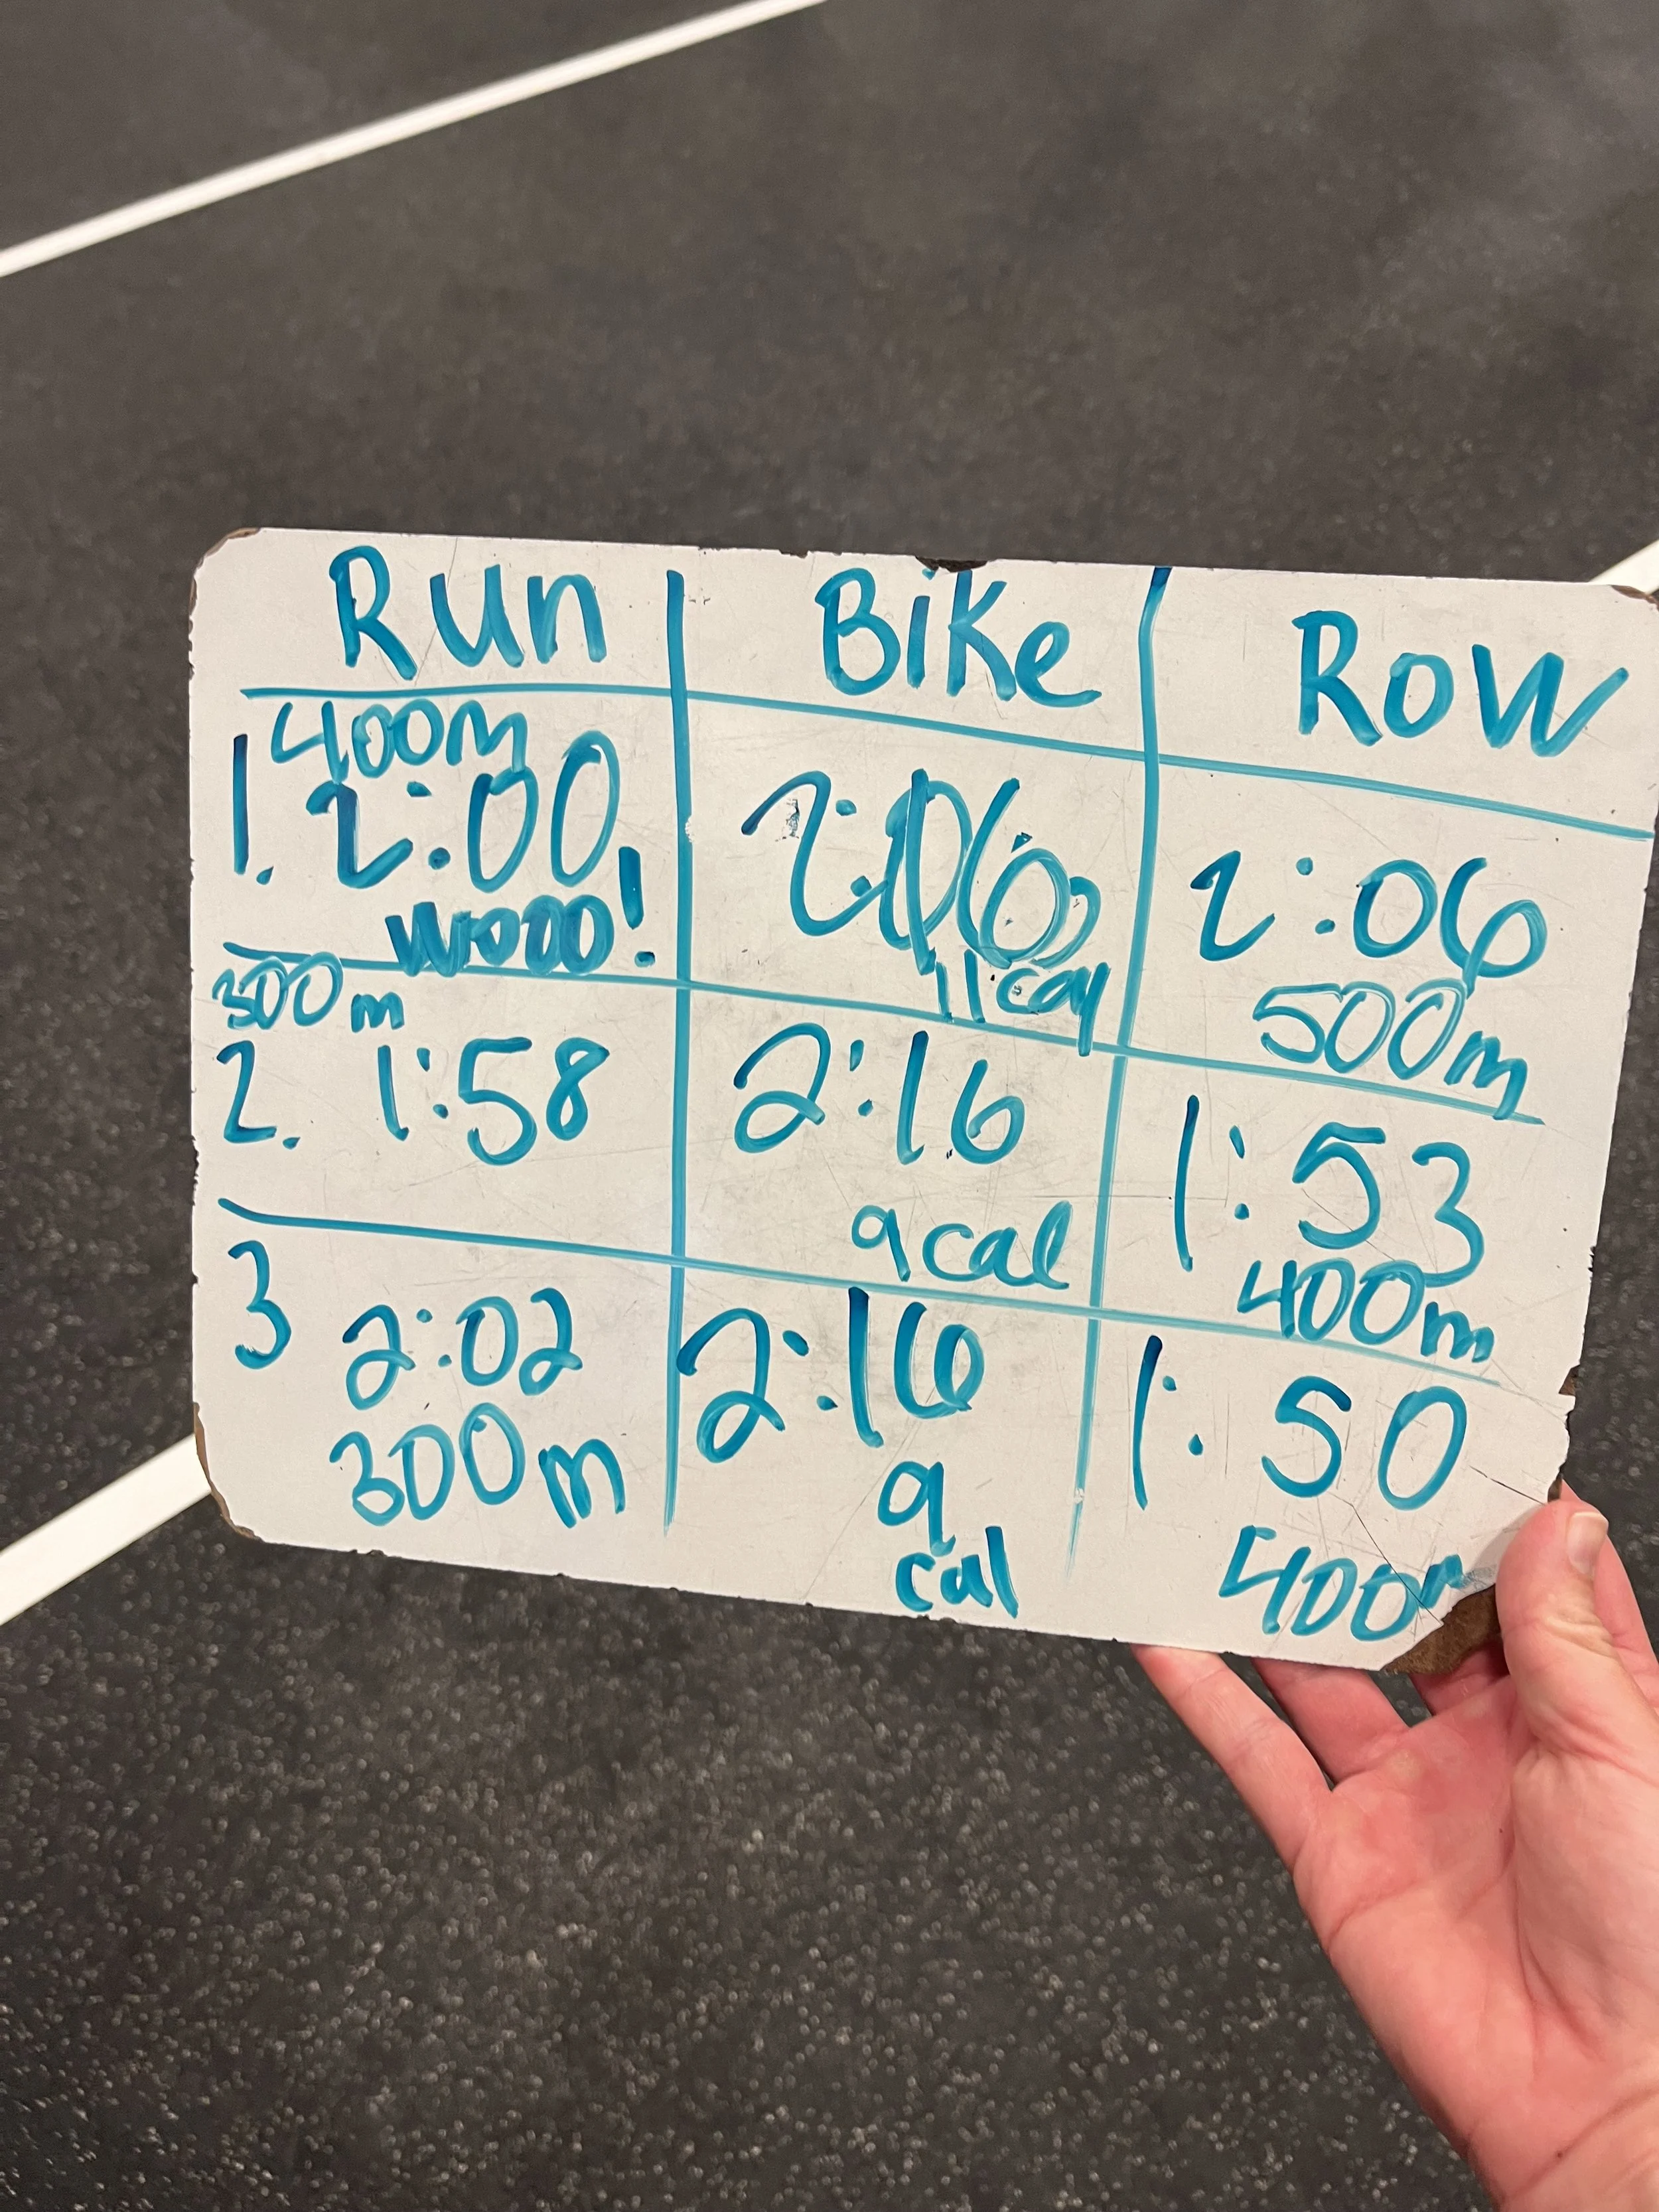 Run Bike Row
400m
1. 2:00
Wooo!
11 cal
2:06
500m
300m
2. 1:58
2:16
9 cal
1:53
400m
3 2:02
300m
2:16
9
cal
1:50
400m